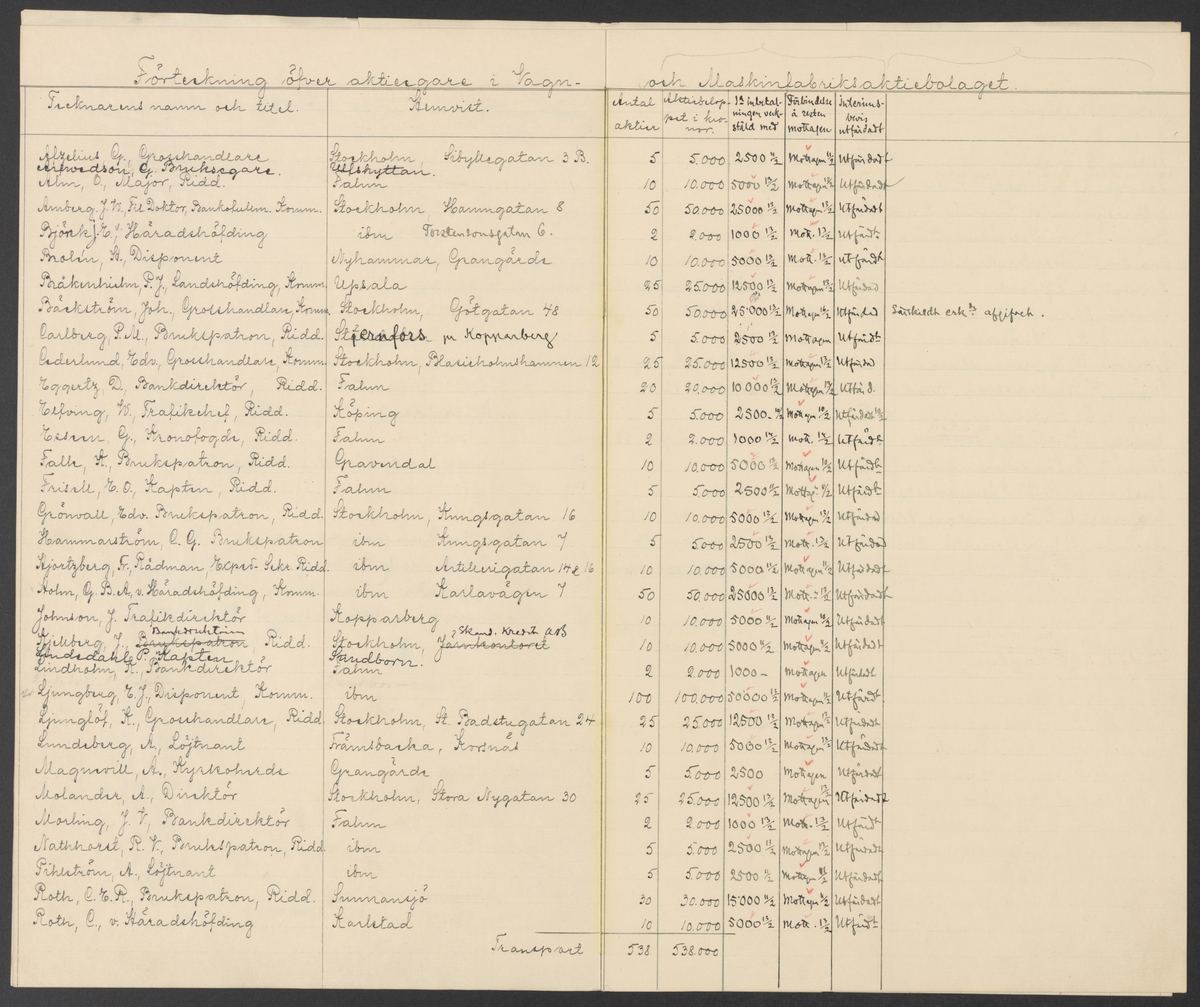 Förteckning öfver aktieegare i Vagn- och Maskinfabriksaktiebolaget.
Tecknarens namn och titel. Hemvist. Antal aktier Aktiebelop-pet i kro-nor. 1a inbetal-ningen verk-stäld med Förbindelse å resten mottagen Interims-bevis utfärdadt
Afzelius, G., Grosshandlare Stockholm, Sibyllegatan 3 B. 5 5.000 2500 Mottagen Utfärdadt
Arfwedson, G. Bruksegare. Ulfshyttan.
Alm, O., Major, Ridd. Falun 10 10.000 5000 Mottagen Utfärdadt
Arnberg, J. W., Fil Doktor, Bankofullm. Komm. Stockholm, Hamngatan 8 50 50.000 25000 Mottagen Utfärdadt
Björck, J. E., Häradshöfding ibm Torstensonsgatan 6. 2 2.000 1000 Mott. Utfärdt
Brolin, St., Disponent Nyhammar, Grangärde 10 10.000 5000 Mott. Utfärdt
Bråkenhielm, P. J., Landshöfding, Komm. Upsala 25 25.000 12500 Mottagen Utfärdad
Bäckström, Joh., Grosshandlare, Komm. Stockholm, Götgatan 48 50 50.000 25000 Mottagen Utfärdad Särskildt erk. afgifvet.
Carlberg, P. M., Brukspatron, Ridd. Stjernfors pr Kopparberg 5 5.000 2500 Mottagen Utfärdt
Cederlund, Edv., Grosshandlare, Komm. Stockholm, Blasieholmshamnen 12 25 25.000 12500 Mottagen Utfärdad
Eggertz, D., Bankdirektör, Ridd. Falun 20 20.000 10000 Mottagen Utfärd.
Elfving, W., Trafikchef, Ridd. Köping 5 5.000 2500 Mottagen Utfärdadt
Essen, G., Kronofogde, Ridd. Falun 2 2.000 1000 Mott. Utfärdt
Falk, K., Brukspatron, Ridd. Gravendal 10 10.000 5000 Mottagen Utfärdt
Frisell, E. O., Kapten, Ridd. Falun 5 5.000 2500 Mottag. Utfärdt
Grönvall, Edv. Brukspatron, Ridd. Stockholm, Kungsgatan 16 10 10.000 5000 Mottagen Utfärdad
Hammarström, C. G. Brukspatron ibm Kungsgatan 7 5 5.000 2500 Mott. Utfärdad
Hjertzberg, Fr., Rådman, Exped. Sekr Ridd. ibm Artillerigatan 14 & 16 10 10.000 5000 Mottagen Utfärdadt
Holm, G. B. A., v. Häradshöfding, Komm. ibm Karlavägen 7 50 50.000 25000 Mott. Utfärdadt
Johnson, J. Trafikdirektör Kopparberg 10 10.000 5000 Mottagen Utfärdadt
Kjellberg, J., Brukspatron, Bankdirektören Ridd. Stockholm, Jernkontoret Skand. Kredit AB 10 10.000 5000 Mottagen Utfärdadt
Lindsdahl, P. Kapten Sundborn.
Lindholm, K., Bankdirektör Falun 2 2.000 1000 – Mottagen Utfärdadt
Ljungberg, E. J., Disponent, Komm. ibm 100 100.000 50000 Mottagen Utfärdt.
Ljunglöf, K., Grosshandlare, Ridd. Stockholm, St. Badstugatan 24 25 25.000 12500 Mottagen Utfärdadt
Lundeberg, A., Löjtnant Främsbacka, Korsnäs 10 10.000 5000 Mottagen Utfärdadt
Magnevill, A., Kyrkoherde Grangärde 5 5.000 2500 Mottagen Utfärdadt
Molander, A., Direktör Stockholm, Stora Nygatan 30 25 25.000 12500 Mottagen Utfärdadt
Morling, J. V., Bankdirektör Falun 2 2.000 1000 Mott. Utfärdt
Nathhorst, R. V., Brukspatron, Ridd. ibm 5 5.000 2500 Mottagen Utfärdadt
Pihlström, A., Löjtnant ibm 5 5.000 2500 Mottagen Utfärdadt
Roth, C. E. R., Brukspatron, Ridd. Sunnansjö 30 30.000 15000 Mottagen Utfärdadt
Roth, C., v. Häradshöfding Karlstad 10 10.000 5000 Mott. Utfärdt
Transport 538 538.000